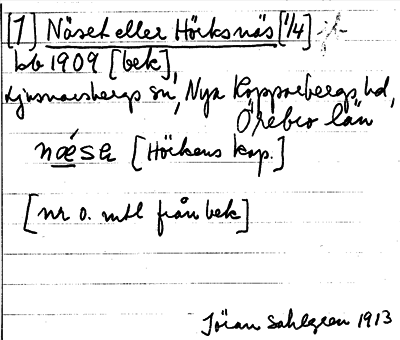 [1] Näset eller Hörksnäs [1/4] -/-
bb 1909 [bek],
Ljusnarsbergs sn, Nya Kopparbergs hd,
Örebro län
næ´sa [Hörkens kap.]
[nr o. mtl från bek]
Jöran Sahlgren 1913